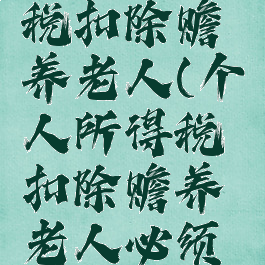 税扣除赡
养老人(个
人所得税
扣除赡养
老人必须